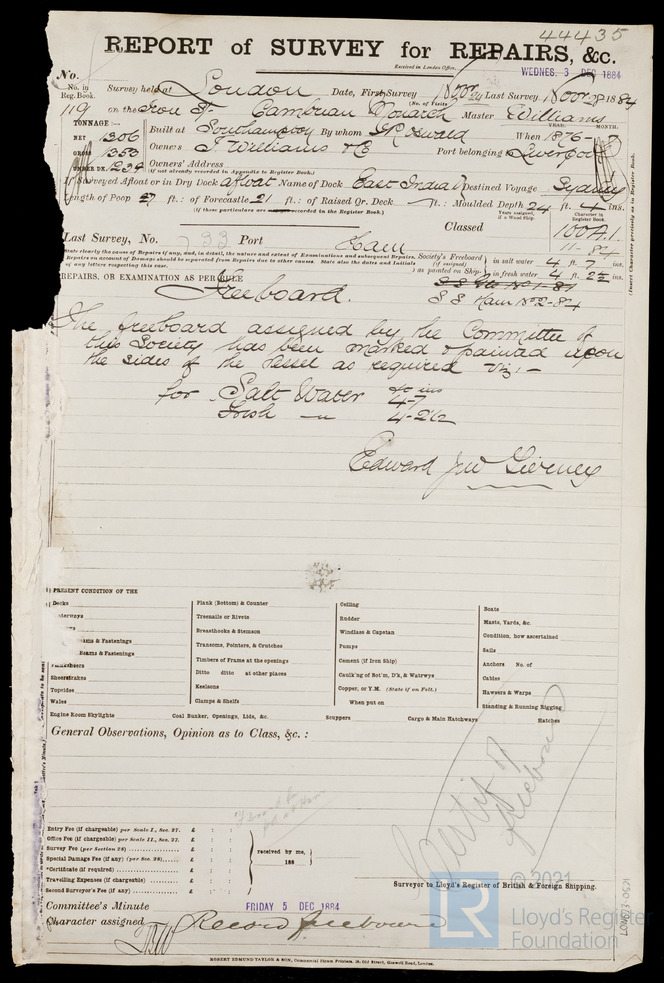 44435
REPORT of SURVEY for REPAIRS, &c.
Received in London Office,
WEDNES. 3 DEC 1884
No.
No. in Reg. Book.
Survey held at London Date, First Survey Nov Last Survey Nov 28 1884
(No. of Visits
119 on the Iron Cambrian Monarch Master Williams
TONNAGE:— YEAR. MONTH.
NET 1306 Built at Southampton By whom Oswald When 1876
GROSS 1353 Owners J. Williams & Co Port belonging Liverpool
UNDER DK. 1239 Owners' Address
(if not already recorded in Appendix to Register Book.)
If Surveyed Afloat or in Dry Dock afloat Name of Dock East India Destined Voyage Sydney
Length of Poop 27 ft.: of Forecastle 21 ft.: of Raised Qr. Deck ft.: Moulded Depth 24 ft. 4 ins.
(if these particulars are recorded in the Register Book.)
Years assigned, if a Wood Ship.
Character in Register Book.
(Insert Character precisely as in Register Book.
Classed 100A1.
11-84
Last Survey, No. 733 Port Ham
State clearly the cause of Repairs if any, and, in detail, the nature and extent of Examinations and subsequent Repairs.
Repairs on account of Damage should be separated from Repairs due to other causes. State also the dates and Initials
of any letters respecting this case.
Society's Freeboard (if assigned) as painted on Ship
in salt water 4 ft. 7 ins.
in fresh water 4 ft. 2½ ins.
REPAIRS, OR EXAMINATION AS PER RULE
S S Ham No 2-84
Freeboard.
The freeboard assigned by the Committee of
this Society has been marked & painted upon
the sides of the Vessel as required viz:—
ft ins
for Salt Water 4-7
Fresh — " 4-2½
Edward Jno
PRESENT CONDITION OF THE
Decks
Waterways
Beams & Fastenings
Sheerstrakes
Topsides
Wales
Engine Room Skylights
Plank (Bottom) & Counter
Treenails or Rivets
Breasthooks & Stemson
Transoms, Pointers, & Crutches
Timbers of Frame at the openings
Ditto ditto at other places
Keelsons
Clamps & Shelfs
Coal Bunker, Openings, Lids, &c.
Ceiling
Rudder
Windlass & Capstan
Pumps
Cement (if Iron Ship)
Caulk'ng of Bot'm, D'k, & Watrwys
Copper, or Y.M. (State if on Felt.)
When put on
Scuppers
Cargo & Main Hatchways
Boats
Masts, Yards, &c.
Condition, how ascertained
Sails
Anchors No. of
Cables
Hawsers & Warps
Standing & Running Rigging
Hatches
General Observations, Opinion as to Class, &c. :
Certif of
Freeboard
Entry Fee (if chargeable) per Scale I., Sec. 27. £ : :
Office Fee (if chargeable) per Scale II., Sec. 27. £ : :
Survey Fee (per Section 28) £ : :
Special Damage Fee (if any) (per Sec. 28) £ : :
*Certificate (if required) £ : :
Travelling Expenses (if chargeable) £ : :
Second Surveyor's Fee (if any) £ : :
received by me,
188
Surveyor to Lloyd's Register of British & Foreign Shipping.
Committee's Minute FRIDAY 5 DEC 1884
Character assigned Record freeboard
ROBERT EDMUND TAYLOR & SON, Commercial Steam Printers, 19, Old Street, Goswell Road, London.
LR
© 2021
Lloyd's Register
Foundation